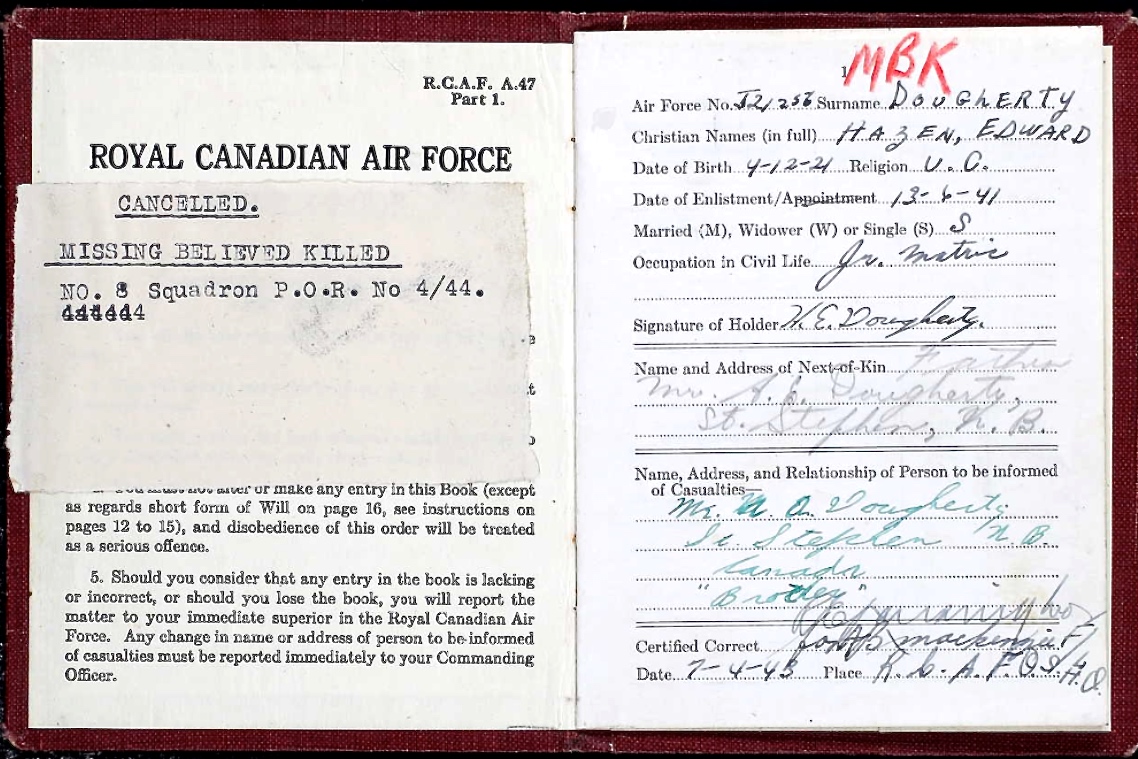 R.C.A.F. A.47
Part 1.
ROYAL CANADIAN AIR FORCE
CANCELLED.
MISSING BELIEVED KILLED
NO. 8 Squadron P.O.R. No 4/44.
or make any entry in this Book (except
as regards short form of Will on page 16, see instructions on
pages 12 to 15), and disobedience of this order will be treated
as a serious offence.
5. Should you consider that any entry in the book is lacking
or incorrect, or should you lose the book, you will report the
matter to your immediate superior in the Royal Canadian Air
Force. Any change in name or address of person to be informed
of casualties must be reported immediately to your Commanding
Officer.
1
MBK
Air Force No. J21256 Surname DOUGHERTY
Christian Names (in full) HAZEN, EDWARD
Date of Birth 4-12-21 Religion U.C.
Date of Enlistment/Appointment 13-6-41
Married (M), Widower (W) or Single (S) S
Occupation in Civil Life Jr. Matric
Signature of Holder H.E. Dougherty.
Name and Address of Next-of-Kin Father
Mr. A. E. Dougherty,
St. Stephen, N.B.
Name, Address, and Relationship of Person to be informed
of Casualties—
Mr. A. Dougherty
St. Stephen N.B.
Canada
"Brother"
Certified Correct mackenzie F/
Date 7-4-43 Place R.C.A.F. O.S. H.Q.